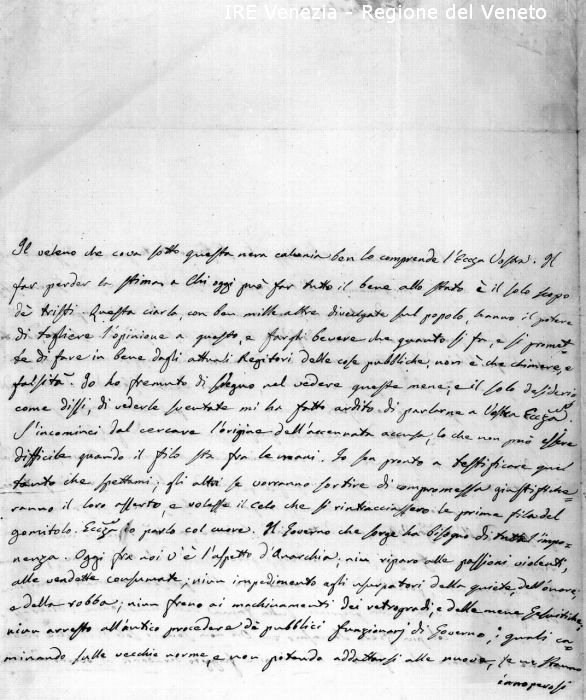 IRE Venezia - Regione del Veneto
Il veleno che cova sotto questa nera calunia ben lo comprende l'Ecc.za Vostra. Il
far perder la stima a chi oggi può far tutto il bene allo stato è il solo scopo
dè tristi. Questa ciarla, con ben mille altre divulgate sul popolo, hanno il potere
di togliere l'opinione a questo, e fargli bevere che quanto si fa, e si promet=
te di fare in bene dagli attuali Regitori delle cose pubbliche, non è che chimere, e
falsità. Io ho fremuto di sdegno nel vedere queste mene, e il solo desiderio
come dissi, di vederle sventate mi ha fatto ardito di parlarne a Vostra Ecc.za
S'incominci dal cercare l'origine dell'accennata accusa, lo che non può essere
difficile quando il filo sta fra le mani. Io son pronto a testificare quel
tanto che spettami; gli altri se vorranno sortire di compromessa giustifiche=
ranno il loro asserto, e volesse il Cielo che si rintracciassero le prime fila del
gomitolo. Ecc.za io parlo col cuore. Il Governo che sorge ha bisogno di tutta l'impo=
nenza. Oggi fra noi v'è l'aspetto d'Anarchia; niun riparo alle passioni violenti,
alle vendette consumate; niun impedimento agli usurpatori della quiete, dell'onore
e della robba; niun freno ai machinamenti dei retrogradi, e delle mene Gesuitiche,
niun arresto all'antico procedere dè pubblici funzionarj di Governo, i quali ca=
minando sulle vecchie norme, e non potendo addattarsi alle nuove, se ne stanno
inoperosi